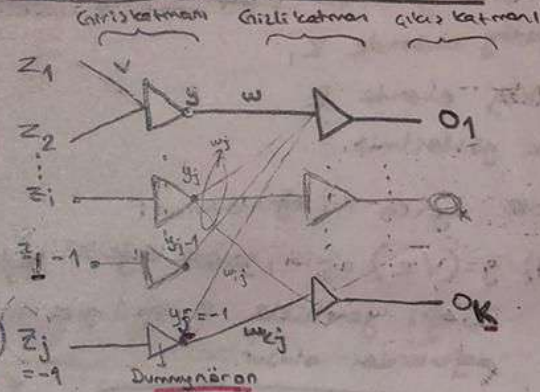 Giriş katmanı Gizli katman Çıkış katmanı
Z1 V
yj w O1
Z2
wj
Zi yj Ok
yj-1
-1 wij
yJ=-1 OK
Zj wkj
=-1
Dummy nöron